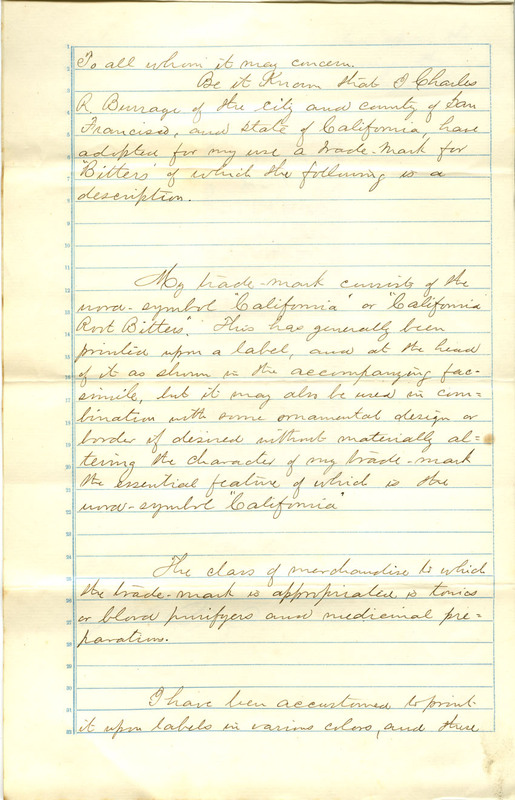 To all whom it may concern.
Be it Known that I Charles
R Burrage of the city and county of San
Francisco, and state of California, have
adopted for my use a trade-mark for
"Bitters" of which the following is a
description.
My trade-mark consists of the
word-symbol "California" or "California
Root Bitters". This has generally been
printed upon a label, and at the head
of it as shown in the accompanying fac-
simile, but it may also be used in com-
bination with some ornamental design or
border if desired without materially al=
tering the character of my trade-mark
the essential feature of which is the
word-symbol "California"
The class of merchandise to which
the trade-mark is appropriated is tonics
or blood purifyers and medicinal pre=
paration.
I have been accustomed to print
it upon labels in various colors, and these